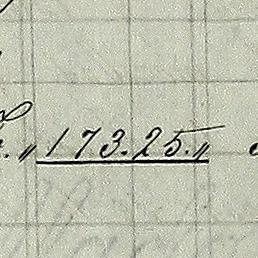 „173.25.„